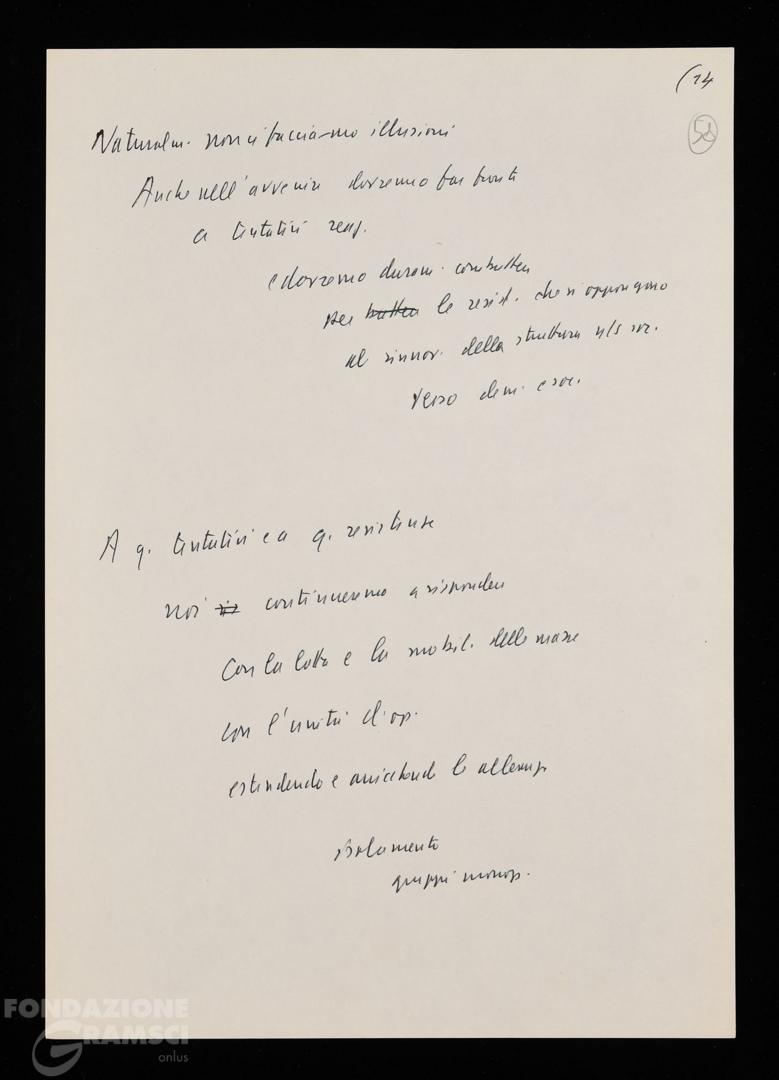 (14
58
Naturalm. non ci facciamo illusioni
Anche nell'avvenire dovremo far fronte
a tentativi reaz.
e dovremo duram. combattere
per battere le resist. che si oppongono
al rinnov. della struttura n/s soc.
verso dem. e soc.
A q. tentativi e a q. resistenze
noi continueremo a rispondere
con la lotta e la mobil. delle masse
con l'unità d. op.
estendendo e arricchendo le alleanze
isolamento
gruppi monop.
FONDAZIONE
GRAMSCI
onlus